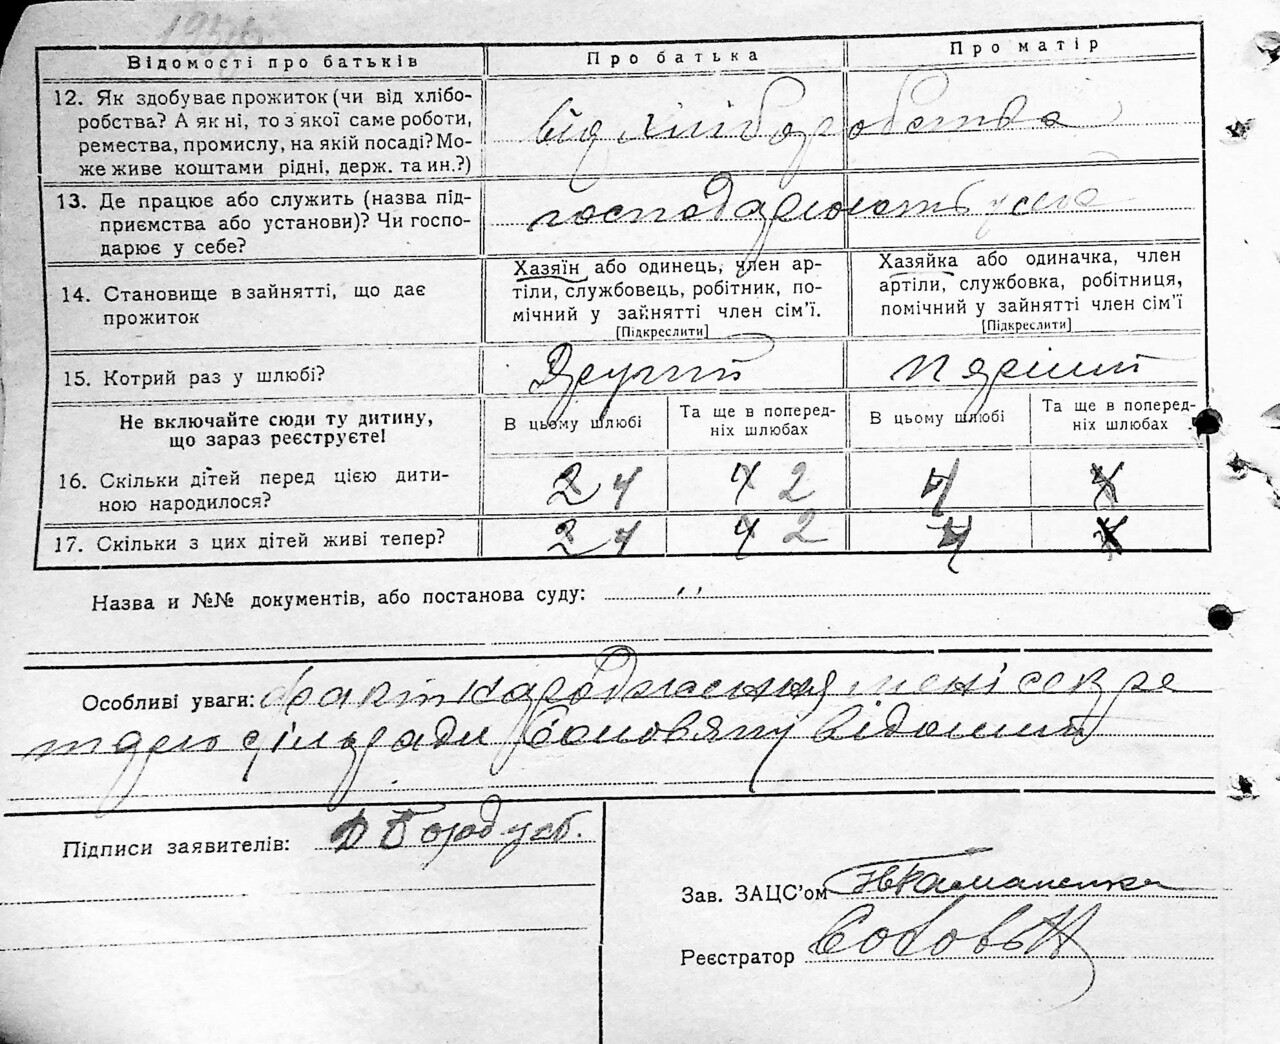 Відомості про батьків Про батька Про матір
12. Як здобуває прожиток (чи від хлібо-
робства? А як ні, то з якої саме роботи,
ремества, промислу, на якій посаді? Мо-
же живе коштами рідні, держ. та ин.?)
від хліборобства
13. Де працює або служить (назва під-
приємства або установи)? Чи госпо-
дарює у себе?
господарюють у себе
14. Становище в зайнятті, що дає
прожиток
Хазяїн або одинець, член ар-
тілі, службовець, робітник, по-
мічний у зайнятті член сім'ї.
[Підкреслити]
Хазяйка або одиначка, член
артіли, службовка, робітниця,
помічний у зайнятті член сім'ї
[Підкреслити]
15. Котрий раз у шлюбі? Другий перший
Не включайте сюди ту дитину,
що зараз реєструєте!
В цьому шлюбі
Та ще в поперед-
ніх шлюбах
В цьому шлюбі
Та ще в поперед-
ніх шлюбах
16. Скільки дітей перед цією дити-
ною народилося?
2 4 4 2 4
17. Скільки з цих дітей живі тепер? 2 4 4 2 4
Назва и №№ документів, або постанова суду: ,,
Особливі уваги: Факт народження мені секре
тарю сільради відомий
Підписи заявителів:
Зав. ЗАЦС'ом
Реєстратор